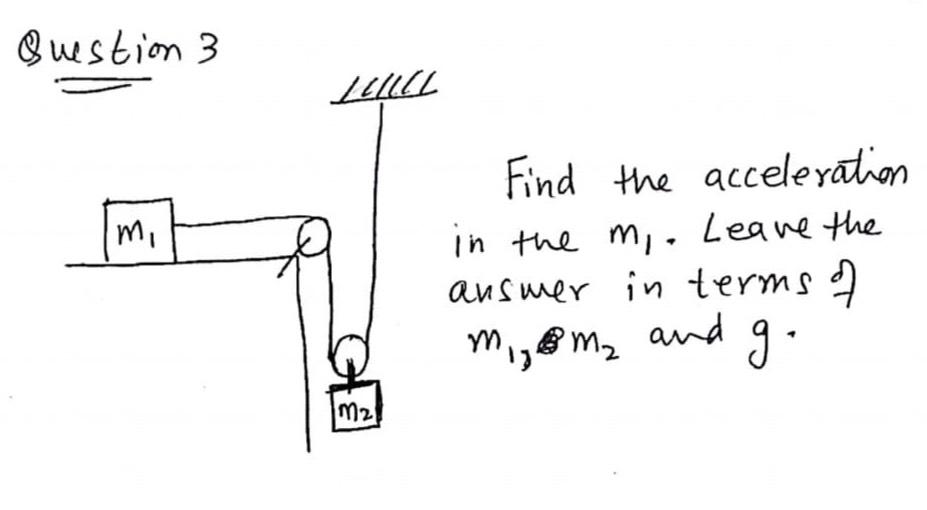 Question 3
m₁
m₂
Find the acceleration
in the m₁. Leave the
answer in terms of
m₁, m₂ and g.